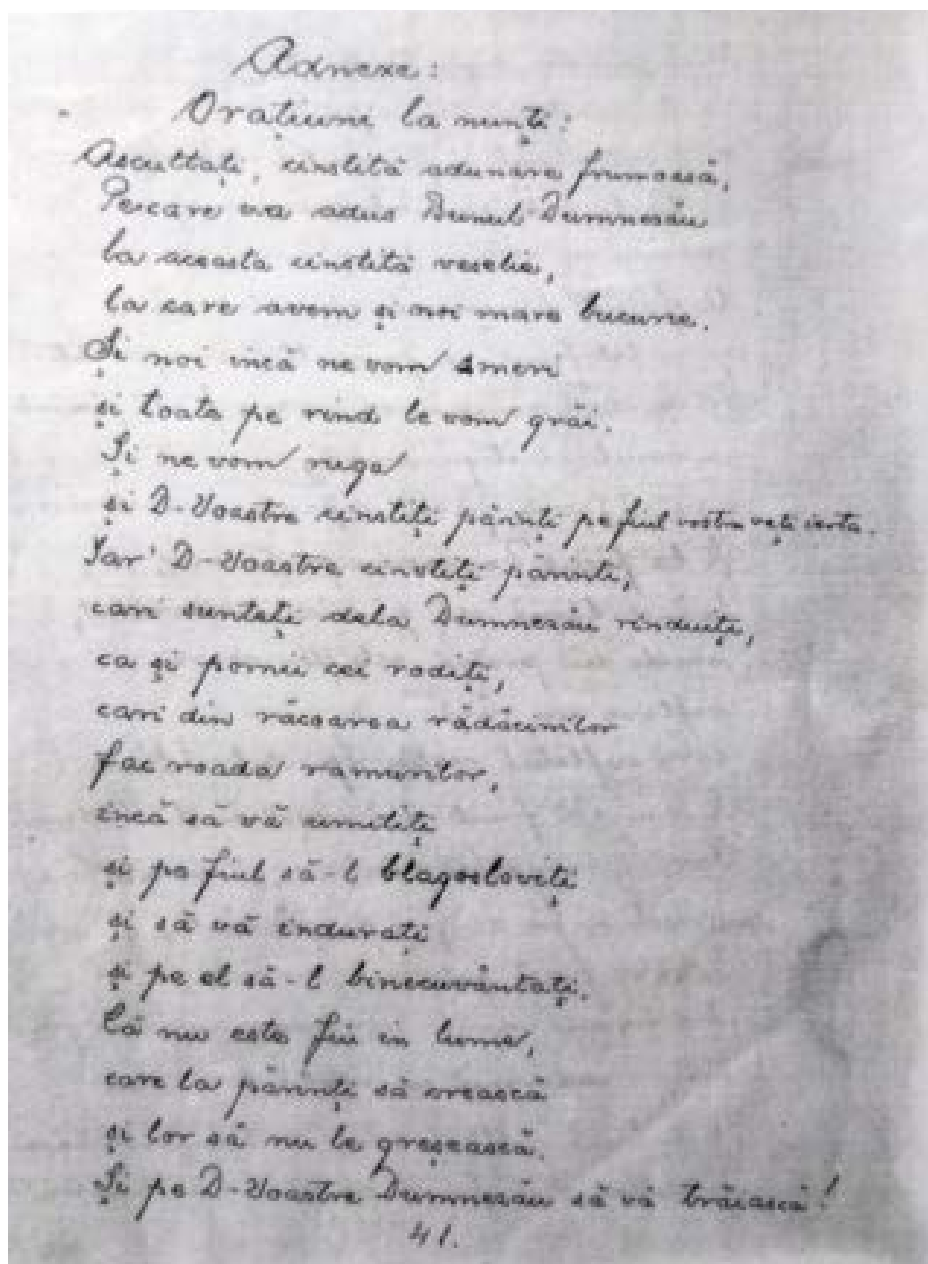 Adnexe:
Orațiuni la nunți:
Ascultați, cinstită adunare frumoasă,
Pe care va adus Bunul Dumnezău
la aceasta cinstită veselie,
la care avem și noi mare bucurie.
Și noi incă ne vom smeri
și toate pe rind le vom grăi.
Și ne vom ruga
și D-Voastre cinstiți părinți pe fiul vostru veți ierta.
Iar' D-Voastre cinstiți părinti,
cari sunteți dela Dumnezău rinduiți,
ca și pomii cei rodiți,
cari din răcoarea rădăcinilor
fac roada ramurilor,
incă să vă umiliți
și pe fiul să-l blagosloviți
și să vă indurați
și pe el să-l binecuvântați.
Că nu este fiu in lume,
care la părinți să crească
și lor să nu le greșească.
Și pe D-Voastre Dumnezău să vă trăiască!
41.